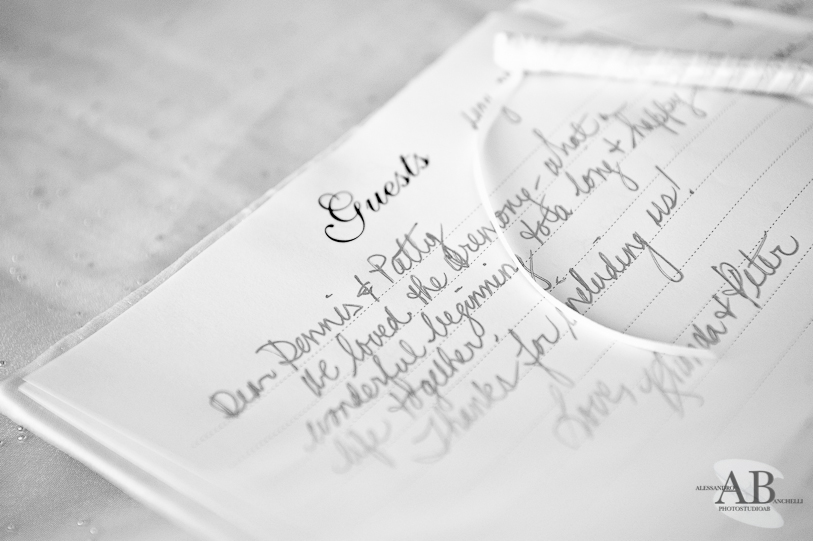 Guests
Dear Dennis & Patty
We loved the ceremony - what a
wonderful beginning to a long & happy
life together.
Thanks for including us!
Love, & Peter
ALESSANDRO AB ANCHELLI
PHOTOSTUDIOAB